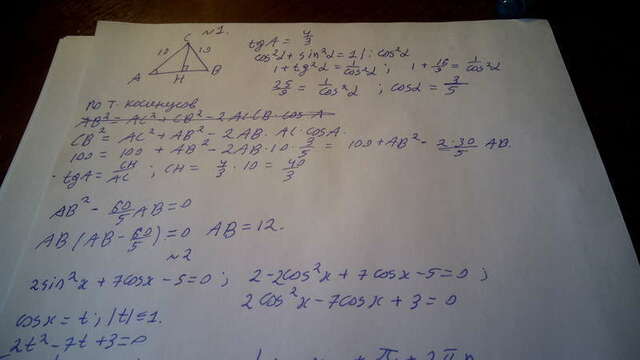 №1.
C
10 10
A H B
tgA = 4/3
cos²α + sin²α = 1 | : cos²α
1 + tg²α = 1/cos²α ; 1 + 16/9 = 1/cos²α
25/9 = 1/cos²α ; cosα = 3/5
По т. косинусов
AB² = AC² + CB² - 2AC·CB·cos A
CB² = AC² + AB² - 2AB·AC·cosA.
100 = 100 + AB² - 2AB·10·3/5 = 100 + AB² - 2·30/5 AB.
tgA = CH/AC ; CH = 4/3 · 10 = 40/3
AB² - 60/5 AB = 0
AB·(AB - 60/5) = 0 AB = 12.
№2
2sin²x + 7cosx - 5 = 0 ; 2 - 2cos²x + 7cosx - 5 = 0 ;
2cos²x - 7cosx + 3 = 0
cosx = t ; |t| ≤ 1.
2t² - 7t + 3 = 0